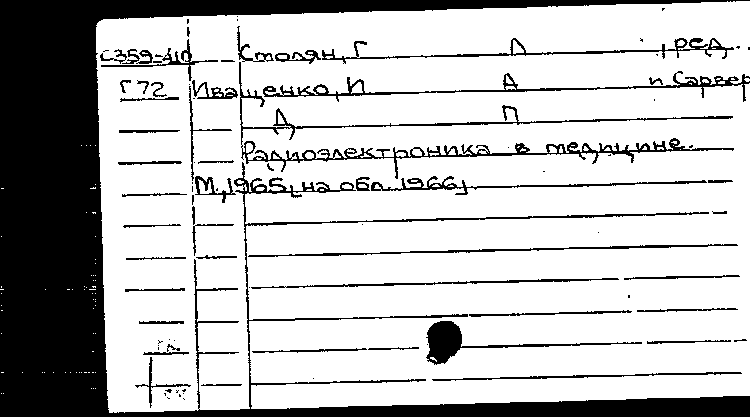 С359-410 Столян, Г Л , ред.
Г72 Иващенко, И А п. Сарвер
Д П
Радиоэлектроника в медицине.
М., 1965, [на обл. 1966]